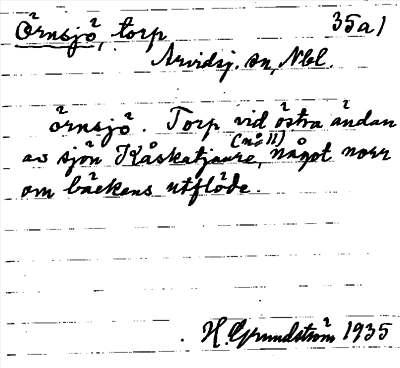 Örnsjö, torp 35a1
Arvidsj. sn, Nbl.
Örnsjö. Torp vid östra ändan
(nº 11)
av sjön Kåskatjaure, något norr
om bäckens utflöde.
H. Grundström 1935